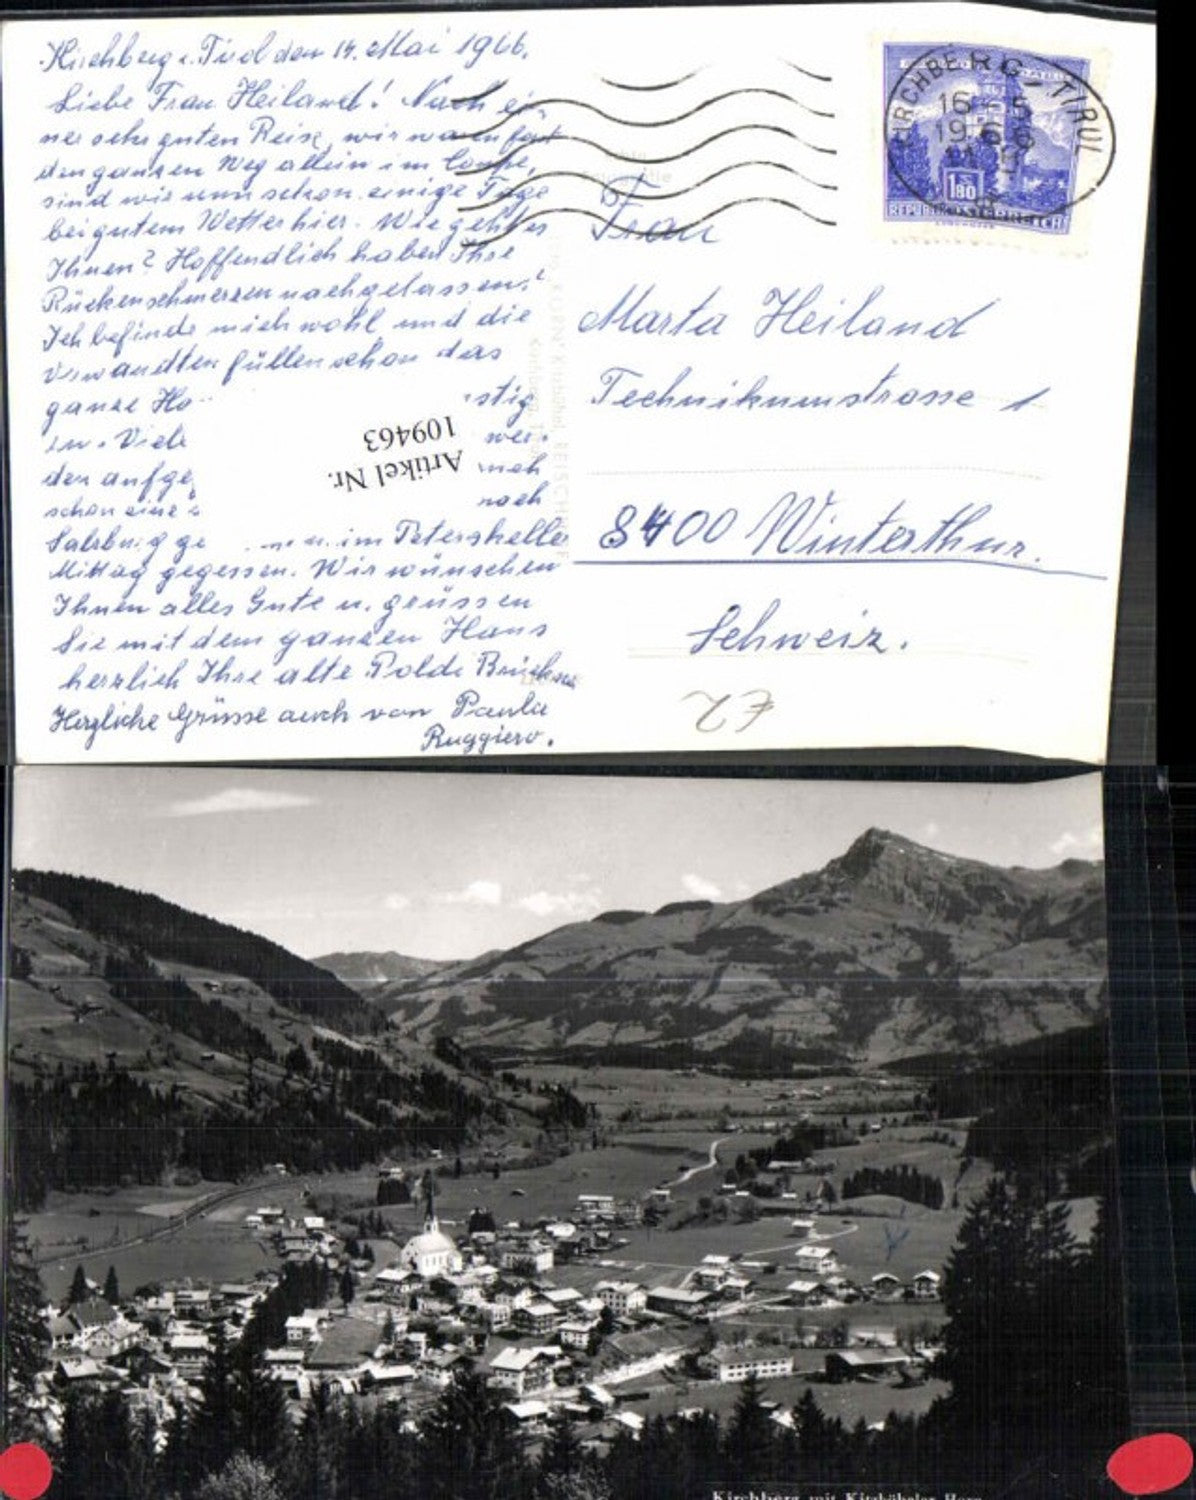 Kirchberg i. Tirol den 14. Mai 1966.
Liebe Frau Heiland! Nach ei-
ner sehr guten Reise, wir waren fast
den ganzen Weg allein im Coupe,
sind wir nun schon einige Tage
bei gutem Wetter hier. Wie geht es
Ihnen? Hoffendlich haben Ihre
Rückenschmerzen nachgelassen!
Ich befinde mich wohl und die
Verwandten füllen schon das
ganze Ho stig
en. Viele wer-
den aufge
schon eine nach
Salzburg ge im Peterskeller
Mittag gegessen. Wir wünschen
Ihnen alles Gute u. grüssen
Sie mit dem ganzen Haus
herzlich Ihre alte Poldi Brückner
Herzliche Grüsse auch von Paula
Ruggiero.
Artikel Nr.
109463
KIRCHBERG - TIROL
16.-5
1966
180
REPUBLIK ÖSTERREICH
Frau
Marta Heiland
Technikumstrasse 1
8400 Winterthur.
Schweiz.
Kirchberg mit Kitzbühler Horn